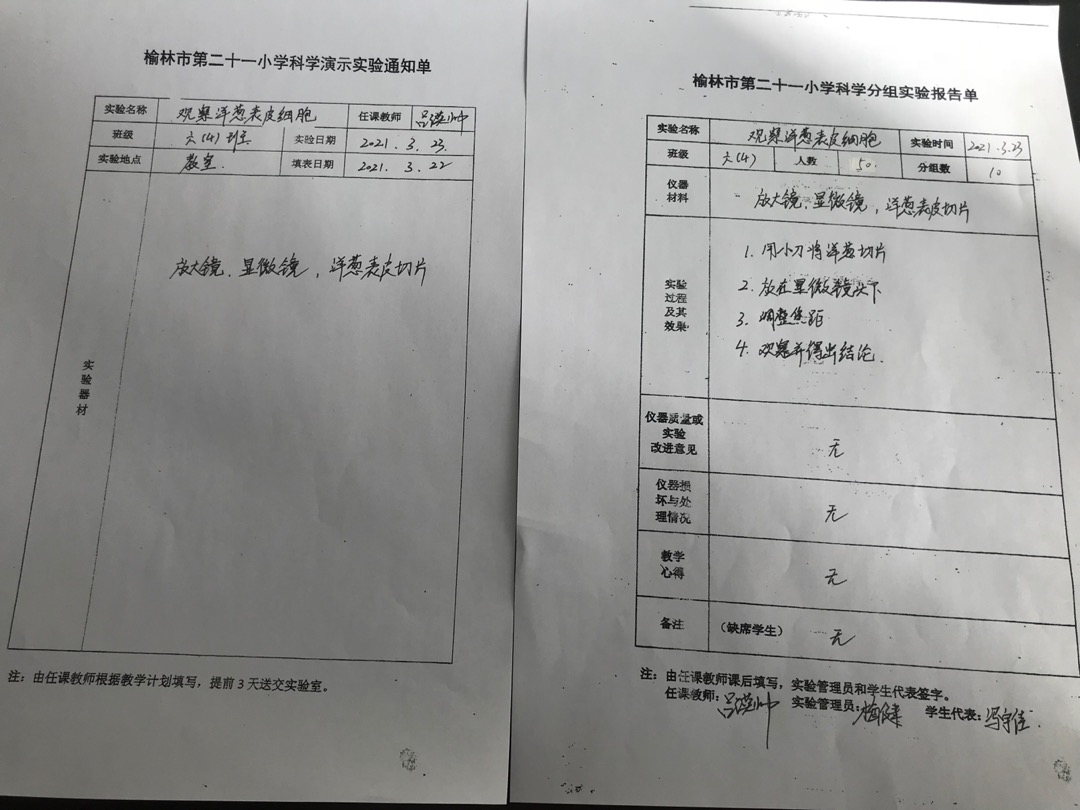 榆林市第二十一小学科学演示实验通知单
实验名称 观察洋葱表皮细胞 任课教师
班级 六(4)班 实验日期 2021.3.23.
实验地点 教室. 填表日期 2021.3.22
实验器材
放大镜、显微镜,洋葱表皮切片
注:由任课教师根据教学计划填写,提前3天送交实验室。
榆林市第二十一小学科学分组实验报告单
实验名称 观察洋葱表皮细胞 实验时间 2021.3.23
班级 六(4) 人数 50 分组数 10
仪器
材料
放大镜、显微镜,洋葱表皮切片
实验
过程
及其
效果
1. 用小刀将洋葱切片
2. 放在显微镜头下
3. 调整焦距
4. 观察并得出结论.
仪器质量或
实验
改进意见
无
仪器损
坏与处
理情况
无
教学
心得
无
备注 (缺席学生) 无
注:由任课教师课后填写,实验管理员和学生代表签字。
任课教师: 实验管理员: 学生代表: